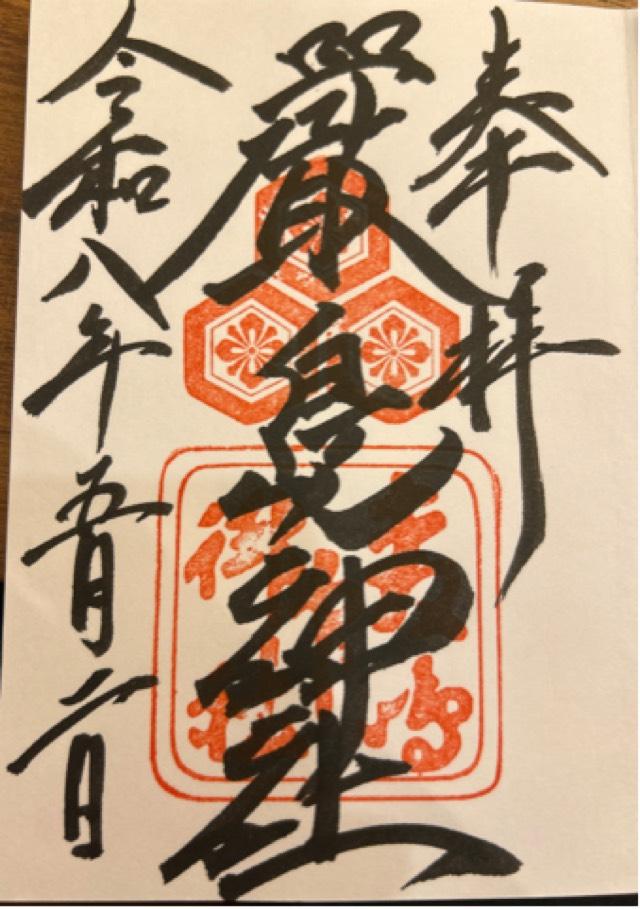 奉拝
嚴島神社
令和八年五月二日